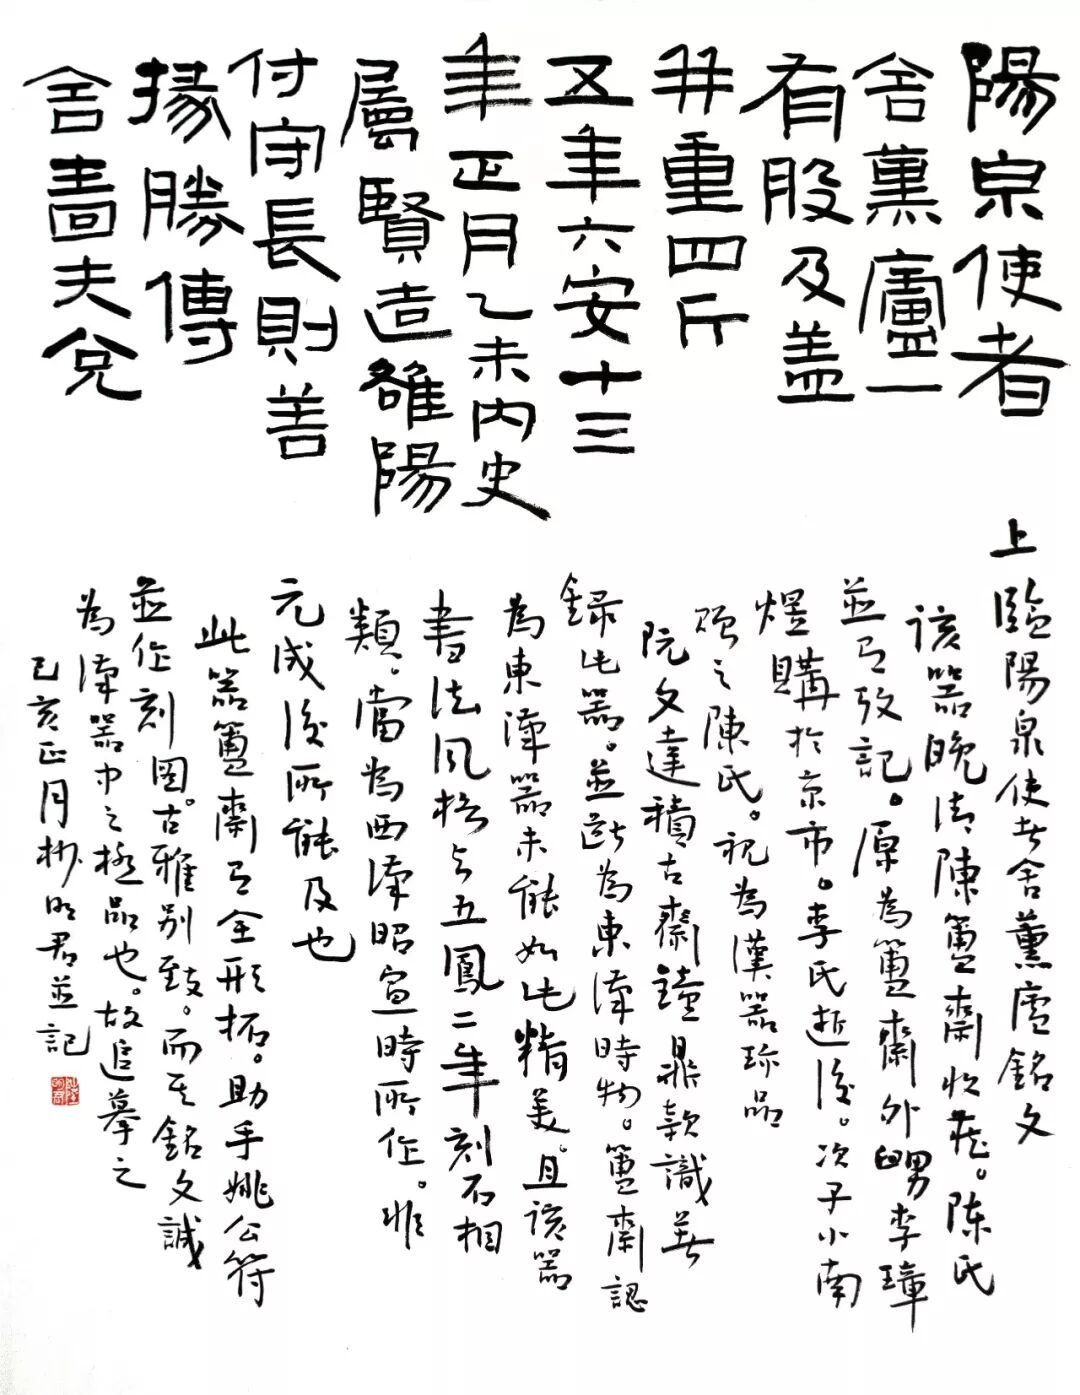 陽泉使者
舍薰廬一
有般及盖
并重四斤
五年六安十三
年正月乙未内史
屬賢造雒陽
付守長則善
掾勝傳
舍嗇夫兌
上臨陽泉使者舍薰廬銘文
該器晚清陳簠齋收藏。陈氏
並有攷記。原為簠齋外舅李璋
煜購於京市。李氏逝後。次子小南
歸之陳氏。視為漢器珍品
阮文達積古齋鐘鼎款識著
録此器。並斷為東漢時物。簠齋認
為東漢器未能如此精美。且該器
書法風格与五鳳二年刻石相
類。當為西漢昭宣時所作。非
元成後所能及也
此器簠齋有全形拓。助手姚公符
並作刻圖。古雅别致。而其銘文誠
為漢器中之極品也。故追摹之
己亥正月杪明君並記